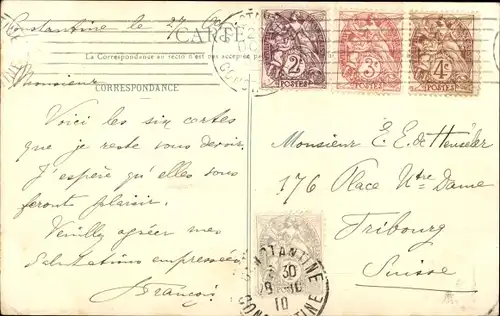 Constantine le 27
CARTE
La Correspondance au recto n'est pas acceptée
CORRESPONDANCE
Monsieur
Voici les six cartes
que je reste vous devoir.
J'espère qu'elles vous
feront plaisir.
Veuillez agréer mes
Salutations empressées
François
2c
POSTES
3c
POSTES
4c
POSTES
Monsieur E. E. de Henseler
176 Place Ntre Dame
Fribourg
Suisse
CONSTANTINE
30
10
CONSTANTINE